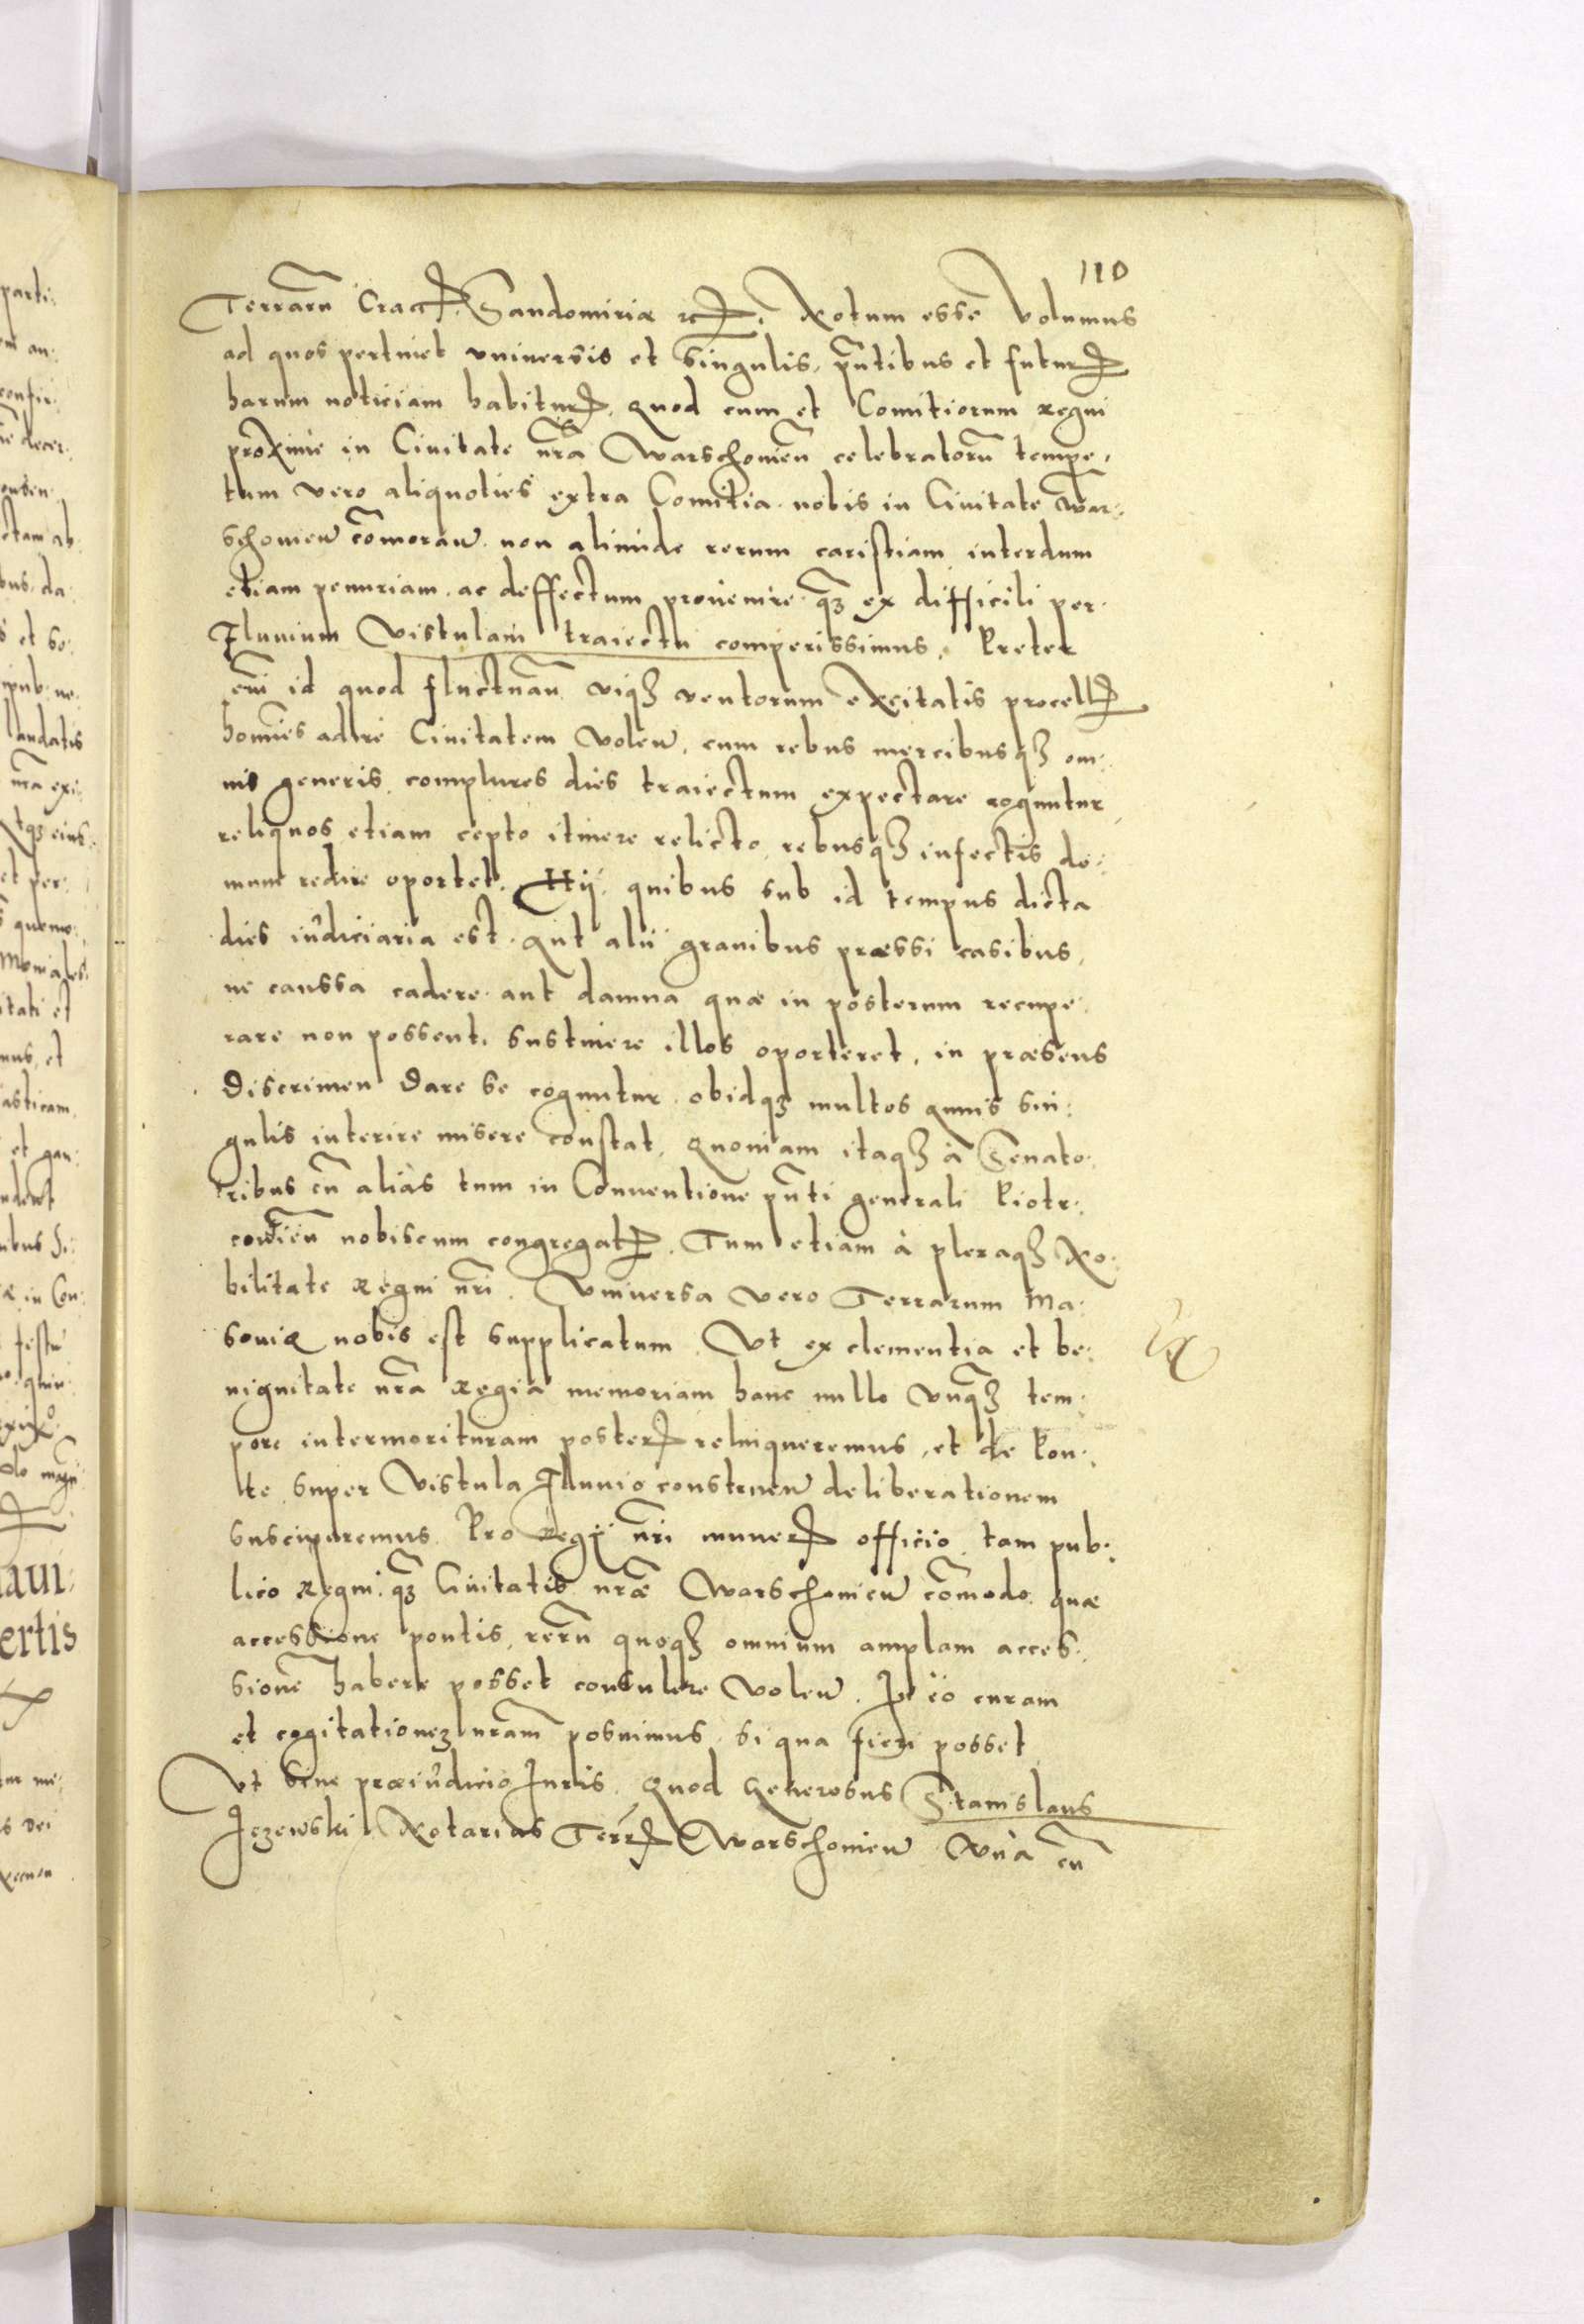 110
Terrarũ Crac. Sandomiriæ etc. Notum esse volumus
ad quos pertinet vniuersis et singulis, pñtibus et futur.
harum noticiam habitur. quod cum et Comitiorum regni
proxime in Ciuitate nr̃a Warschouien̄ celebratorũ tempe,
tum vero aliquoties extra Comitia nobis in Ciuitate War:
schouien̄ com̃oran̄. non aliunde rerum caristiam interdum
etiam penuriam ac deffectum prouenire qȝ ex difficili per
Fluuium Vistulam traiectu comperissimus. Preter
em̃ id quod fluctuañ viqȝ ventorum excitatis procell.
homines adire Ciuitatem volen̄, cum rebus mercibusqȝ om:
nis generis complures dies traiectum expectare coguntur,
reliquos etiam cepto itinere relicto, rebusqȝ infectis do:
mum redire oportet. Hij quibus sub id tempus dicta
dies iudiciaria est aut alij grauibus præssi casibus,
ne caussa cadere aut damna quæ in posterum recupe:
rare non possent, sustinere illos oporteret, in præsens
discrimen dare se coguntur. obidqȝ multos annis sin:
gulis interire misere constat, quoniam itaqȝ à Senato:
ribus cũ alias tum in Conuentione pñti generali Piotr:
couien̄ nobiscum congregat. Tum etiam à pleraqȝ No:
bilitate Regni nr̃i. Vniuersa vero Terrarum Ma:
souiæ nobis est supplicatum. Vt ex clementia et be:
nignitate nr̃a Regia memoriam hanc nullo vnqȝ tem:
pore intermorituram poster. relinqueremus, et de Pon:
te super Vistula Fluuio construen̄ deliberationem
susciperemus. Pro Regij nr̃i muner. officio tam pub:
lico Regni, qȝ Ciuitatis nr̃æ Warschouien̄ com̃odo quæ
accessione pontis, rerũ quoqȝ omnium amplam acces:
sionẽ habere posset consulere volen̄. In eo curam
et cogitationeȝ nr̃am posuimus si qua fieri posset
Vt sine præiudicio Iuris quod Generosus Stanislaus
Jezewski Notarius Terr. Warschouien̄ vna cũ